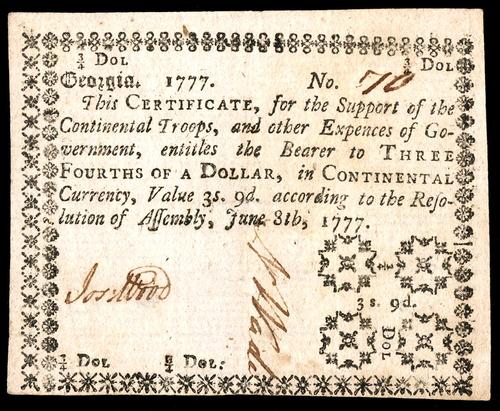 ¾ Dol ¾ Dol
Georgia. 1777. No. 70
This CERTIFICATE, for the Support of the
Continental Troops, and other Expences of Go-
vernment, entitles the Bearer to THREE
FOURTHS OF A DOLLAR, in CONTINENTAL
Currency, Value 3s. 9d. according to the Reso-
lution of Assembly, June 8th, 1777.
Jos: Wood
N Wade
¾
3s. 9d.
Dol
¾ Dol ¾ Dol: